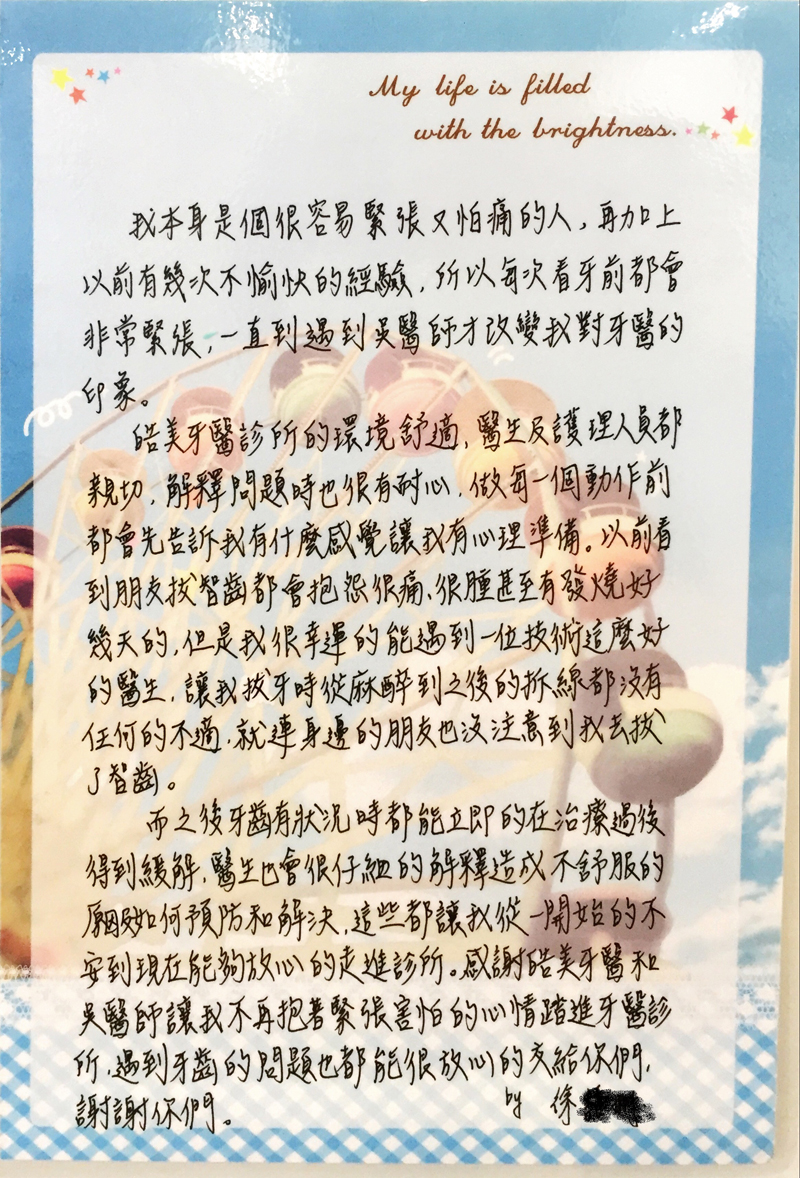 My life is filled
with the brightness.
我本身是個很容易緊張又怕痛的人，再加上
以前有幾次不愉快的經驗，所以每次看牙前都會
非常緊張，一直到遇到吳醫師才改變我對牙醫的
印象。
皓美牙醫診所的環境舒適，醫生及護理人員都
親切，解釋問題時也很有耐心，做每一個動作前
都會先告訴我有什麼感覺讓我有心理準備。以前看
到朋友拔智齒都會抱怨很痛、很腫甚至有發燒好
幾天的，但是我很幸運的能遇到一位技術這麼好
的醫生，讓我拔牙時從麻醉到之後的拆線都沒有
任何的不適，就連身邊的朋友也沒注意到我去拔
了智齒。
而之後牙齒有狀況時都能立即的在治療過後
得到緩解，醫生也會很仔細的解釋造成不舒服的
原因及如何預防和解決，這些都讓我從一開始的不
安到現在能夠放心的走進診所。感謝皓美牙醫和
吳醫師讓我不再抱著緊張害怕的心情踏進牙醫診
所，遇到牙齒的問題也都能很放心的交給你們，
謝謝你們。
by 徐